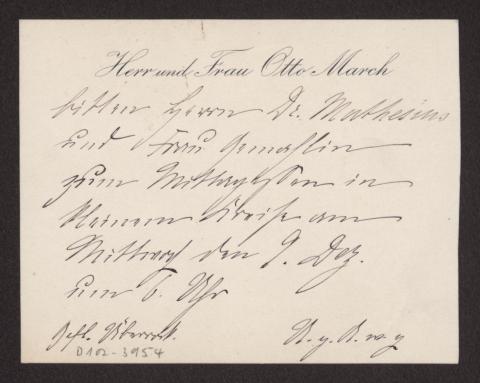 Herr und Frau Otto March
bitten Herrn Dr. Mathesius
und Frau Gemahlin
zum Mittagessen in
kleinem Kreise am
Mittwoch den 9. Dez.
um 6. Uhr
Gefl. Überrock.
U. g. A. w. g
D102-3954